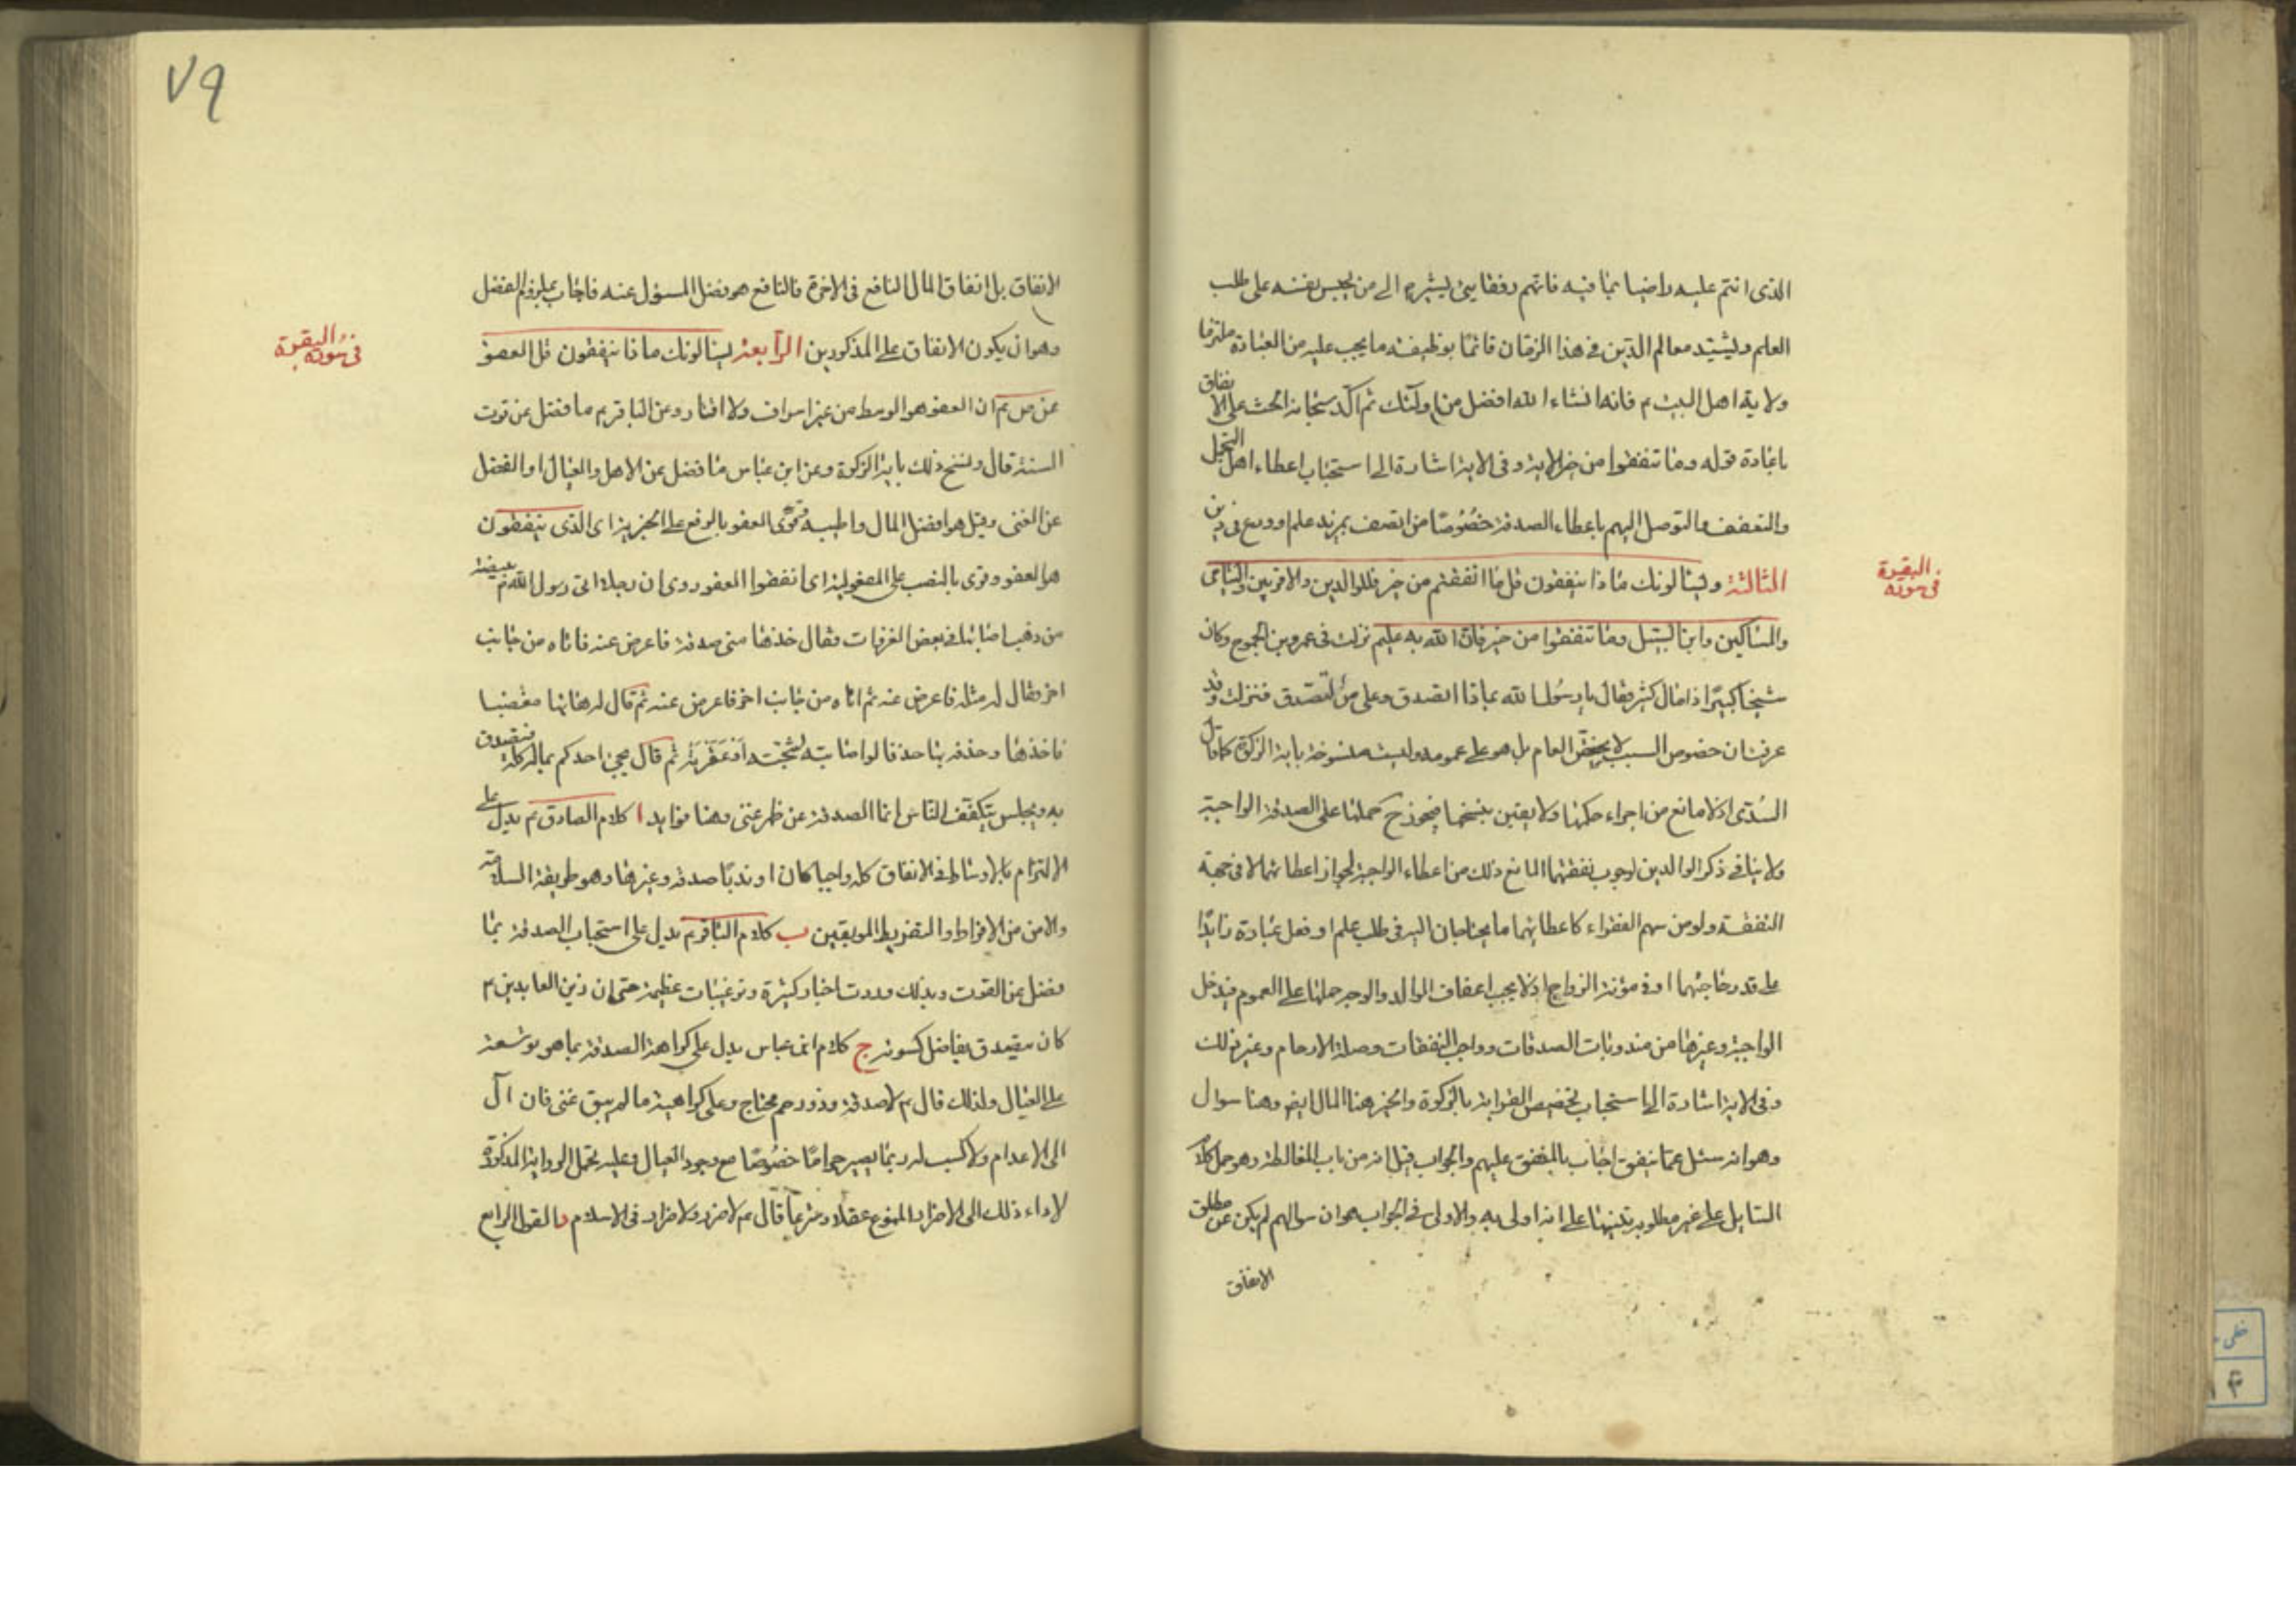 الذى انتم عليه راضيا بما فيه فانهم رفقايى ليشيره الى من يحبس نفسه على طلب
العلم وليشيد معالم الدين فى هذا الزمان قائما بوظيفته ما يجب عليه من العبادة ملتزما
ولاية اهل البيت م فانه انشاء الله افضل من اولئك ثم اكد سبحانه الحث على الانفاق
باعادة قوله وما تنفقوا من خير الاية وفى الاية اشارة الى استحباب اعطاء اهل التجمل
والتعفف والتوصل اليهم باعطاء الصدقة خصوصا من اتصف بمزيد علم او ورع فى دين
فى سورة البقرة
الثالثة ويسئالونك ماذا ينفقون قل ما انفقتم من خير فللوالدين والاقربين واليتامى
والمساكين وابن السبيل وما تنفقوا من خير فان الله به عليم نزلت فى عمرو بن الجموح وكان
شيخا كبيرا ذا مال كثير فقال يا رسول الله بماذا اتصدق وعلى من اتصدق فنزلت وقد
عرفت ان خصوص السبب لا يخص العام بل هو على عمومه وليست منسوخة باية الزكوة كما قال
السدى اذ لا مانع من اجراء حكمها ولا يقين بنسخها فيجوز ح حملها على الصدقة الواجبة
ولا ينافى ذكر الوالدين لوجوب نفقتهما المانع ذلك من اعطاء الواجبة لجواز اعطائهما لا فى جهة
النفقة ولو من سهم الفقراء كاعطائهما ما يحتاجان اليه فى طلب علم او فعل عبادة زايدا
على قدر حاجتهما او فى مؤنة الزواج اذ لا يجب اعفاف الوالد والوجه حملها على العموم فيدخل
الواجبة وغيرها من مندوبات الصدقات وواجب النفقات وصلة الارحام وغير ذلك
وفى الاية اشارة الى استحباب تخصيص القرابة بالزكوة والخير هنا المال ايضا وهنا سوال
وهو انه سئل عما ينفق اجاب بالمنفق عليهم والجواب قيل انه من باب المغالطة وهو حمل كلام
السايل على غير مطلوبه تنبيها على انه اولى به والاولى فى الجواب هو ان سوالهم لم يكن عن مطلق
الانفاق
٧٩
الانفاق بل انفاق المال النافع فى الاخرة فالنافع هو فصل المسؤل عنه فاجاب الفصل
وهو ان يكون الانفاق على المذكورين الرابعة يسئالونك ماذا ينفقون قل العفو
فى سورة البقرة
عن ص م ان العفو هو الوسط من غير اسراف ولا اقتار وعن الباقر م ما فضل عن قوت
السنة قال ونسخ ذلك باية الزكوة وعن ابن عباس ما فضل عن الاهل والعيال او الفضل
عن الغنى وقيل هو افضل المال واطيبه وقرئ العفو بالرفع على الخبرية اى الذى ينفقون
هو العفو وقرى بالنصب على المفعولية اى انفقوا العفو روى ان رجلا اتى رسول الله ص ببيضة
من ذهب اصابها فى بعض الغزوات فقال خذها منى صدقة فاعرض عنه فاتاه من جانب
اخر فقال له مثله فاعرض عنه ثم اتاه من جانب اخر فاعرض عنه ثم قال له هاتها مغضبا
فاخذها وحذفه بها حذفا لو اصابته لشجته او عقرته ثم قال يجئ احدكم بماله كله فيتصدق
به ويجلس يتكفف الناس انما الصدقة عن ظهر غنى وهنا فوايد ا كلام الصادق م يدل على
الالتزام بالاوساط فى الانفاق كله واجبا كان او ندبا صدقة وغيرها وهو طريقة السلامة
والامن من الافراط والتفريط الموبقين ب كلام الباقر م يدل على استحباب الصدقة بما
فضل عن القوت وبذلك وردت اخبار كثيرة وترغيبات عظيمة حتى ان زين العابدين م
كان يتصدق بفاضل كسوته ج كلام ابن عباس يدل على كراهة الصدقة بما هو توسعة
على العيال ولذلك قال م لا صدقة وذو رحم محتاج وعلى كراهية ما لم يبق غنى فان آل
الى الاعدام ولا كسب له ربما يصير حراما خصوصا مع وجود العيال وعليه تحمل الرواية المذكورة
لاداء ذلك الى الاضرار الممنوع عقلا وشرعا قال م لا ضرر ولا ضرار فى الاسلام د القول الرابع